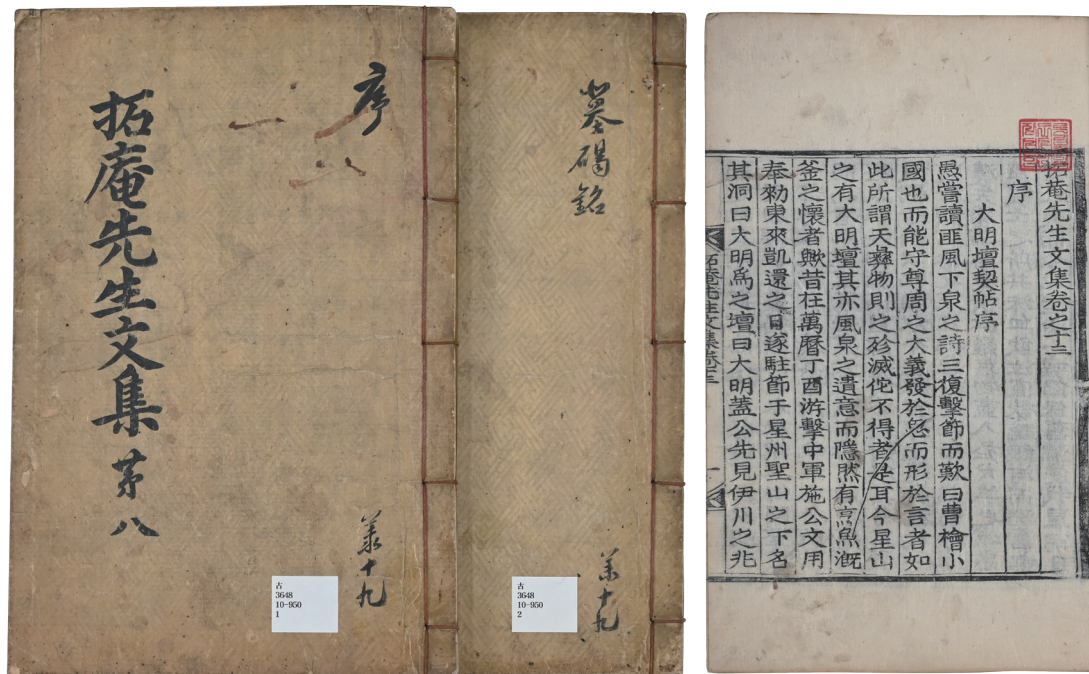 拓庵先生文集 苐八
序
一
八
共十九
古
3648
10-950
1
墓碣銘
共十九
古
3648
10-950
2
拓菴先生文集卷之十三
序
大明壇契帖序
愚嘗讀匪風下泉之詩三復擊節而歎曰曹檜小
國也而能守尊周之大義發於怨而形於言者如
此所謂天彝物則之殄滅佗不得者是耳今星山
之有大明壇其亦風泉之遺意而隱然有烹魚漑
釜之懷者歟昔在萬曆丁酉游擊中軍施公文用
奉勑東來凱還之日遂駐節于星州聖山之下名
其洞曰大明爲之壇曰大明蓋公先見伊川之兆
拓菴先生文集卷十三
一